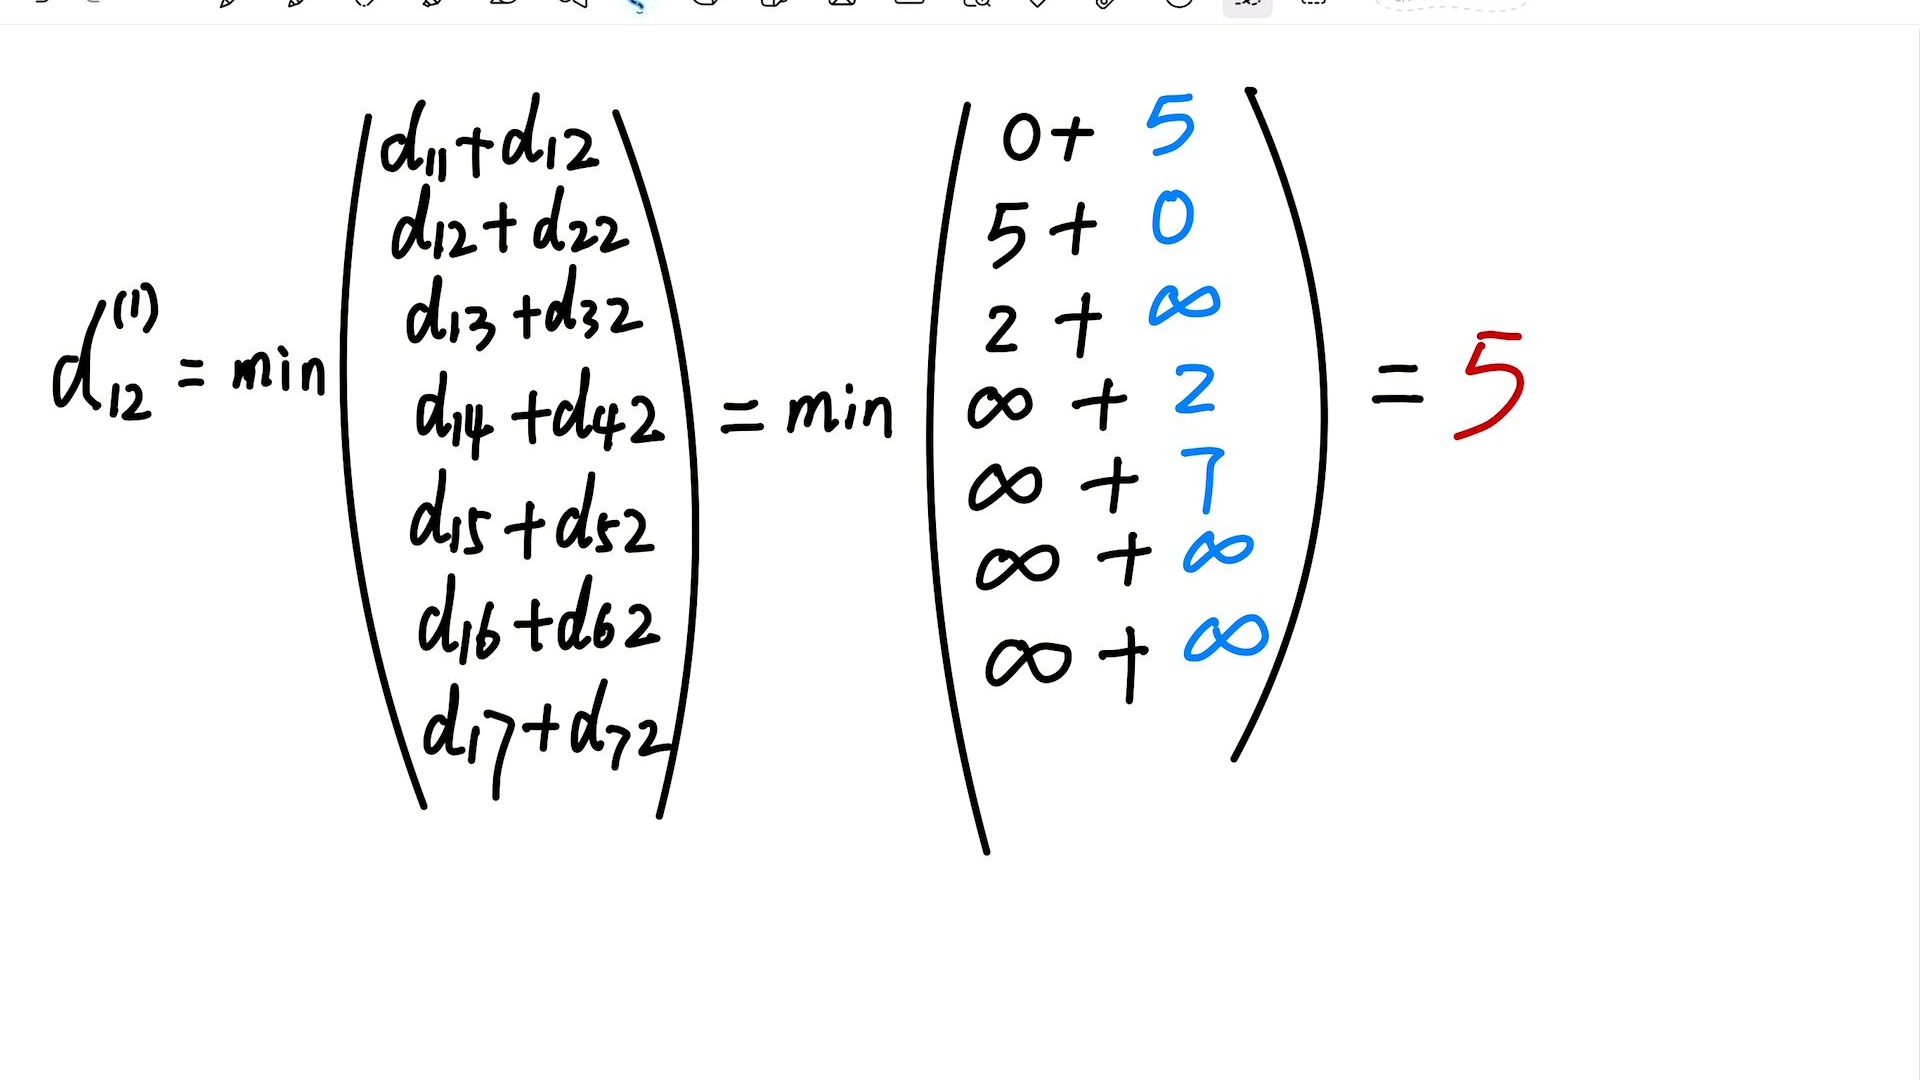 d₁₂⁽¹⁾ = min
d₁₁+d₁₂
d₁₂+d₂₂
d₁₃+d₃₂
d₁₄+d₄₂
d₁₅+d₅₂
d₁₆+d₆₂
d₁₇+d₇₂
= min
0+5
5+0
2+∞
∞+2
∞+7
∞+∞
∞+∞
= 5